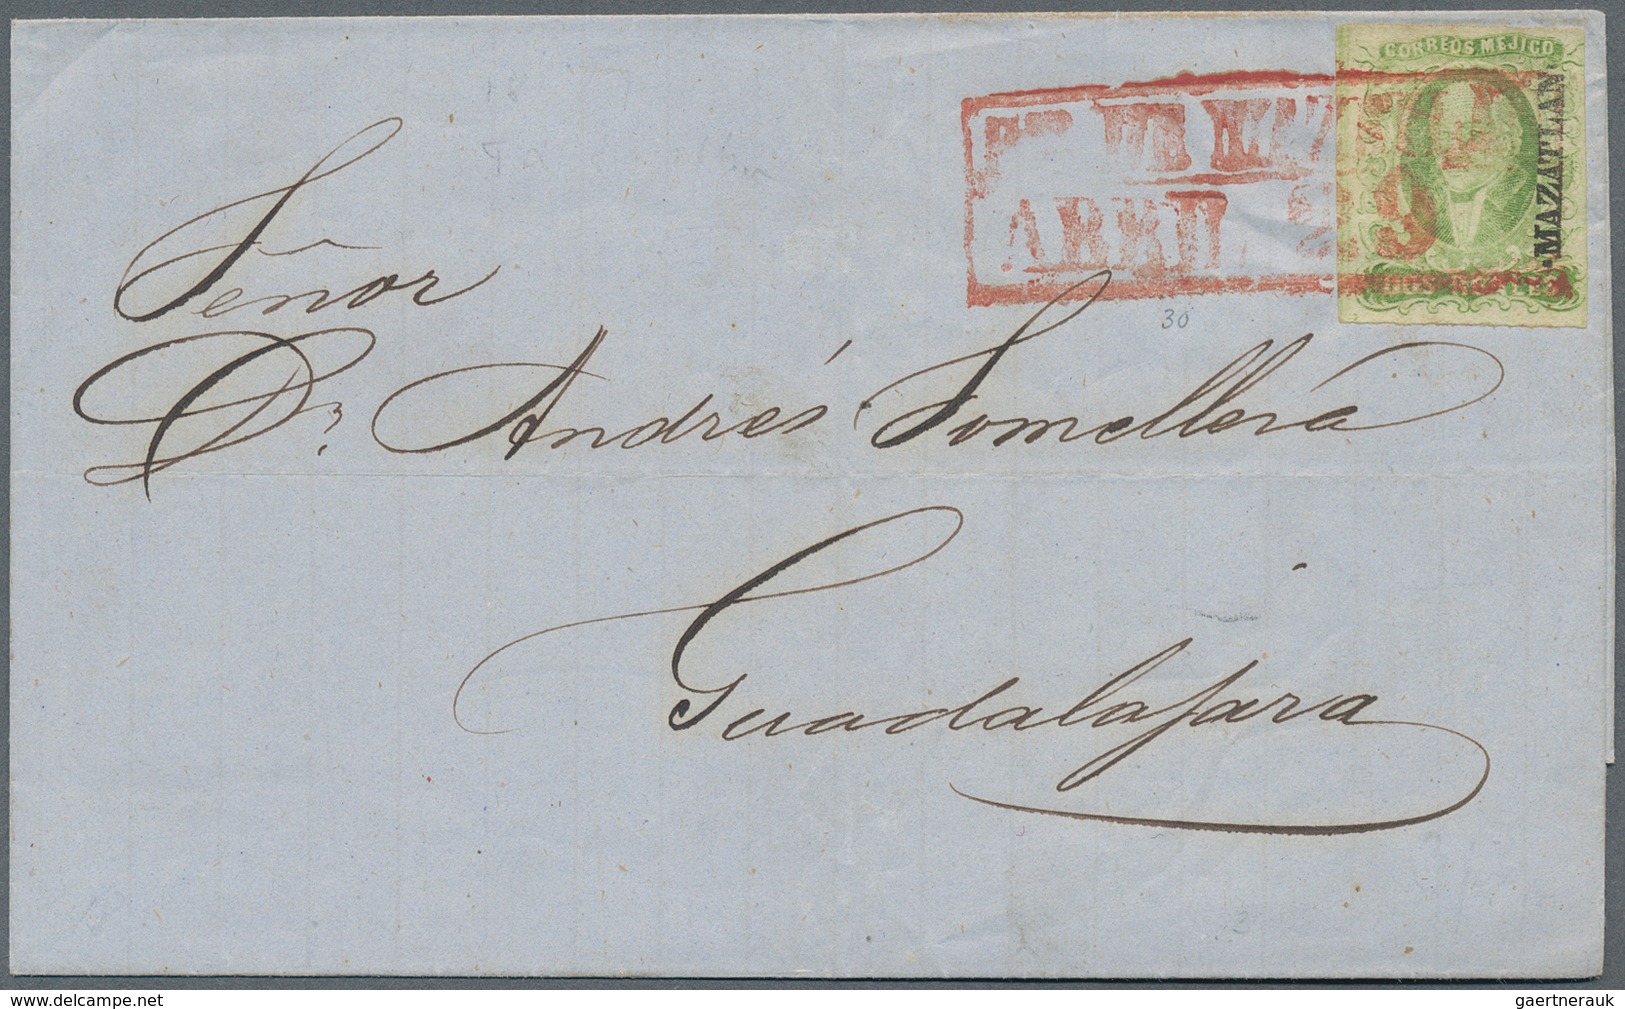 CORREOS MEJICO
·MAZATLAN·
DE MAZ
ABRIL
30
Señor
Dn Andrés Somellera
Guadalajara
3
www.delcampe.net
gaertnerauk